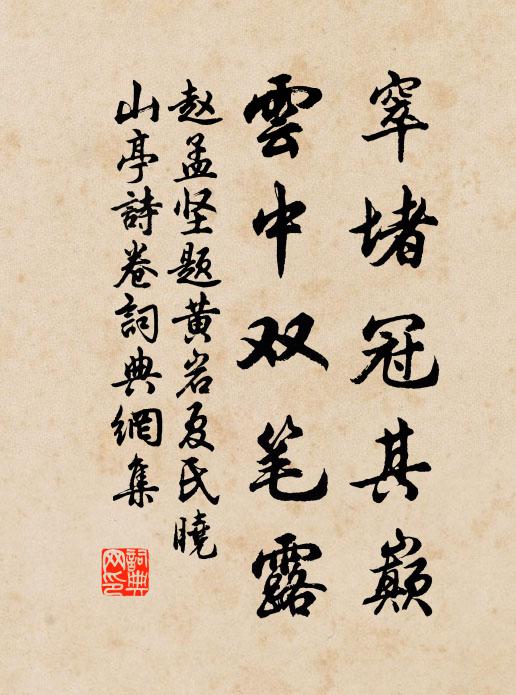 窣堵冠其巔
雲中双笔露
赵孟坚题黄岩夏氏曉
山亭詩卷詞典網集
詞典網印